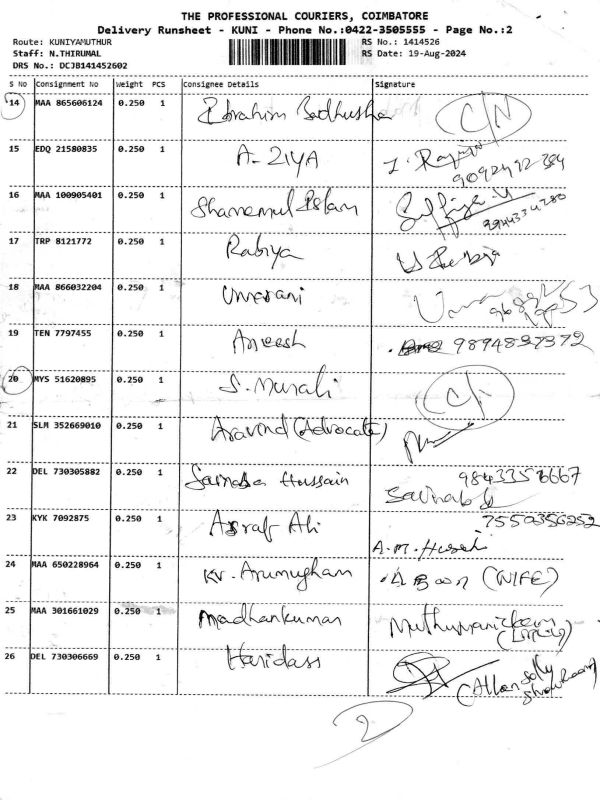 THE PROFESSIONAL COURIERS, COIMBATORE
Delivery Runsheet - KUNI - Phone No.:0422-3505555 - Page No.:2
Route: KUNIYAMUTHUR RS No.: 1414526
Staff: N.THIRUMAL RS Date: 19-Aug-2024
DRS No.: DCJB141452602
S No Consignment No Weight PCS Consignee Details Signature
14 MAA 865606124 0.250 1 Ibrahim Badhusha C/N
15 EDQ 21580835 0.250 1 A-ZIYA
16 MAA 100905401 0.250 1 Islam
9944334280
17 TRP 8121772 0.250 1 Rabiya
18 MAA 866032204 0.250 1 Umarani
19 TEN 7797455 0.250 1 Aneesh 9894837372
20 MYS 51620895 0.250 1 S. Murali C/N
21 SLM 352669010 0.250 1 Aravind (Advocate)
22 DEL 730305882 0.250 1 Hussain
23 KYK 7092875 0.250 1 Asraf Ali 7550356252
24 MAA 650228964 0.250 1 Kr. Arumugham (WIFE)
25 MAA 301661029 0.250 1 Madhankumar
26 DEL 730306669 0.250 1 Haridass
2